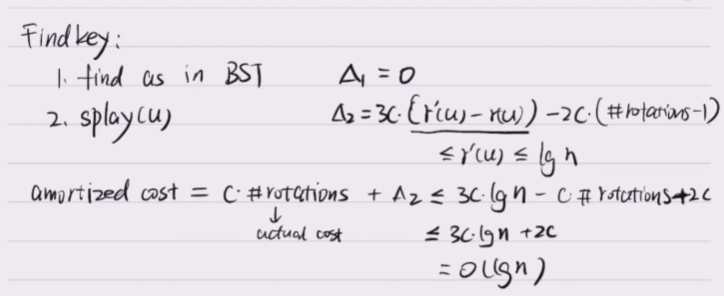 Findkey:
1. find as in BST Δ₁ = 0
2. splay(u) Δ₂ = 3C·(r'(u) - r(u)) - 2C·(#rotations-1)
≤ r'(u) ≤ lg n
amortized cost = C·#rotations + Δ₂ ≤ 3C·lg n - C #rotations+2C
↓
actual cost ≤ 3C·lg n + 2C
= O(lg n)